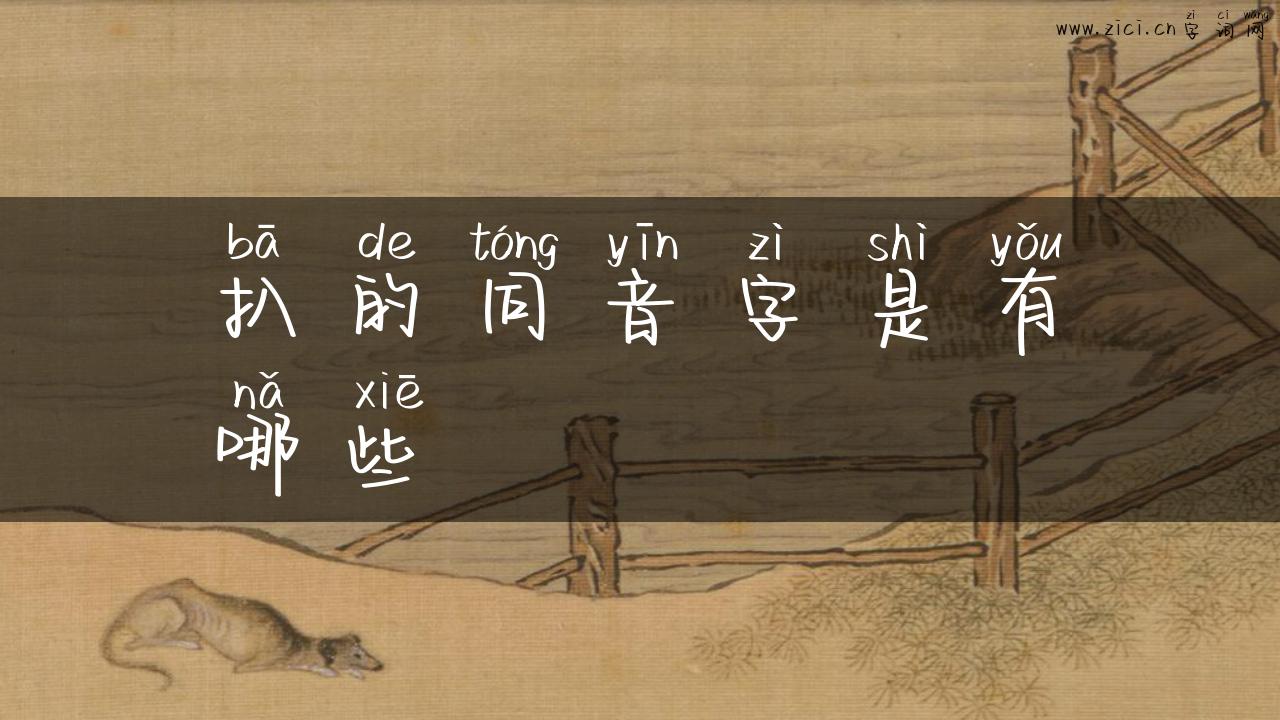 zì cí wǎng
www.zici.cn 字词网
bā de tóng yīn zì shì yǒu
扒的同音字是有
nǎ xiē
哪些